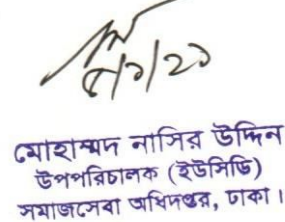 মোহাম্মদ নাসির উদ্দিন
উপপরিচালক (ইউসিডি)
সমাজসেবা অধিদপ্তর, ঢাকা।